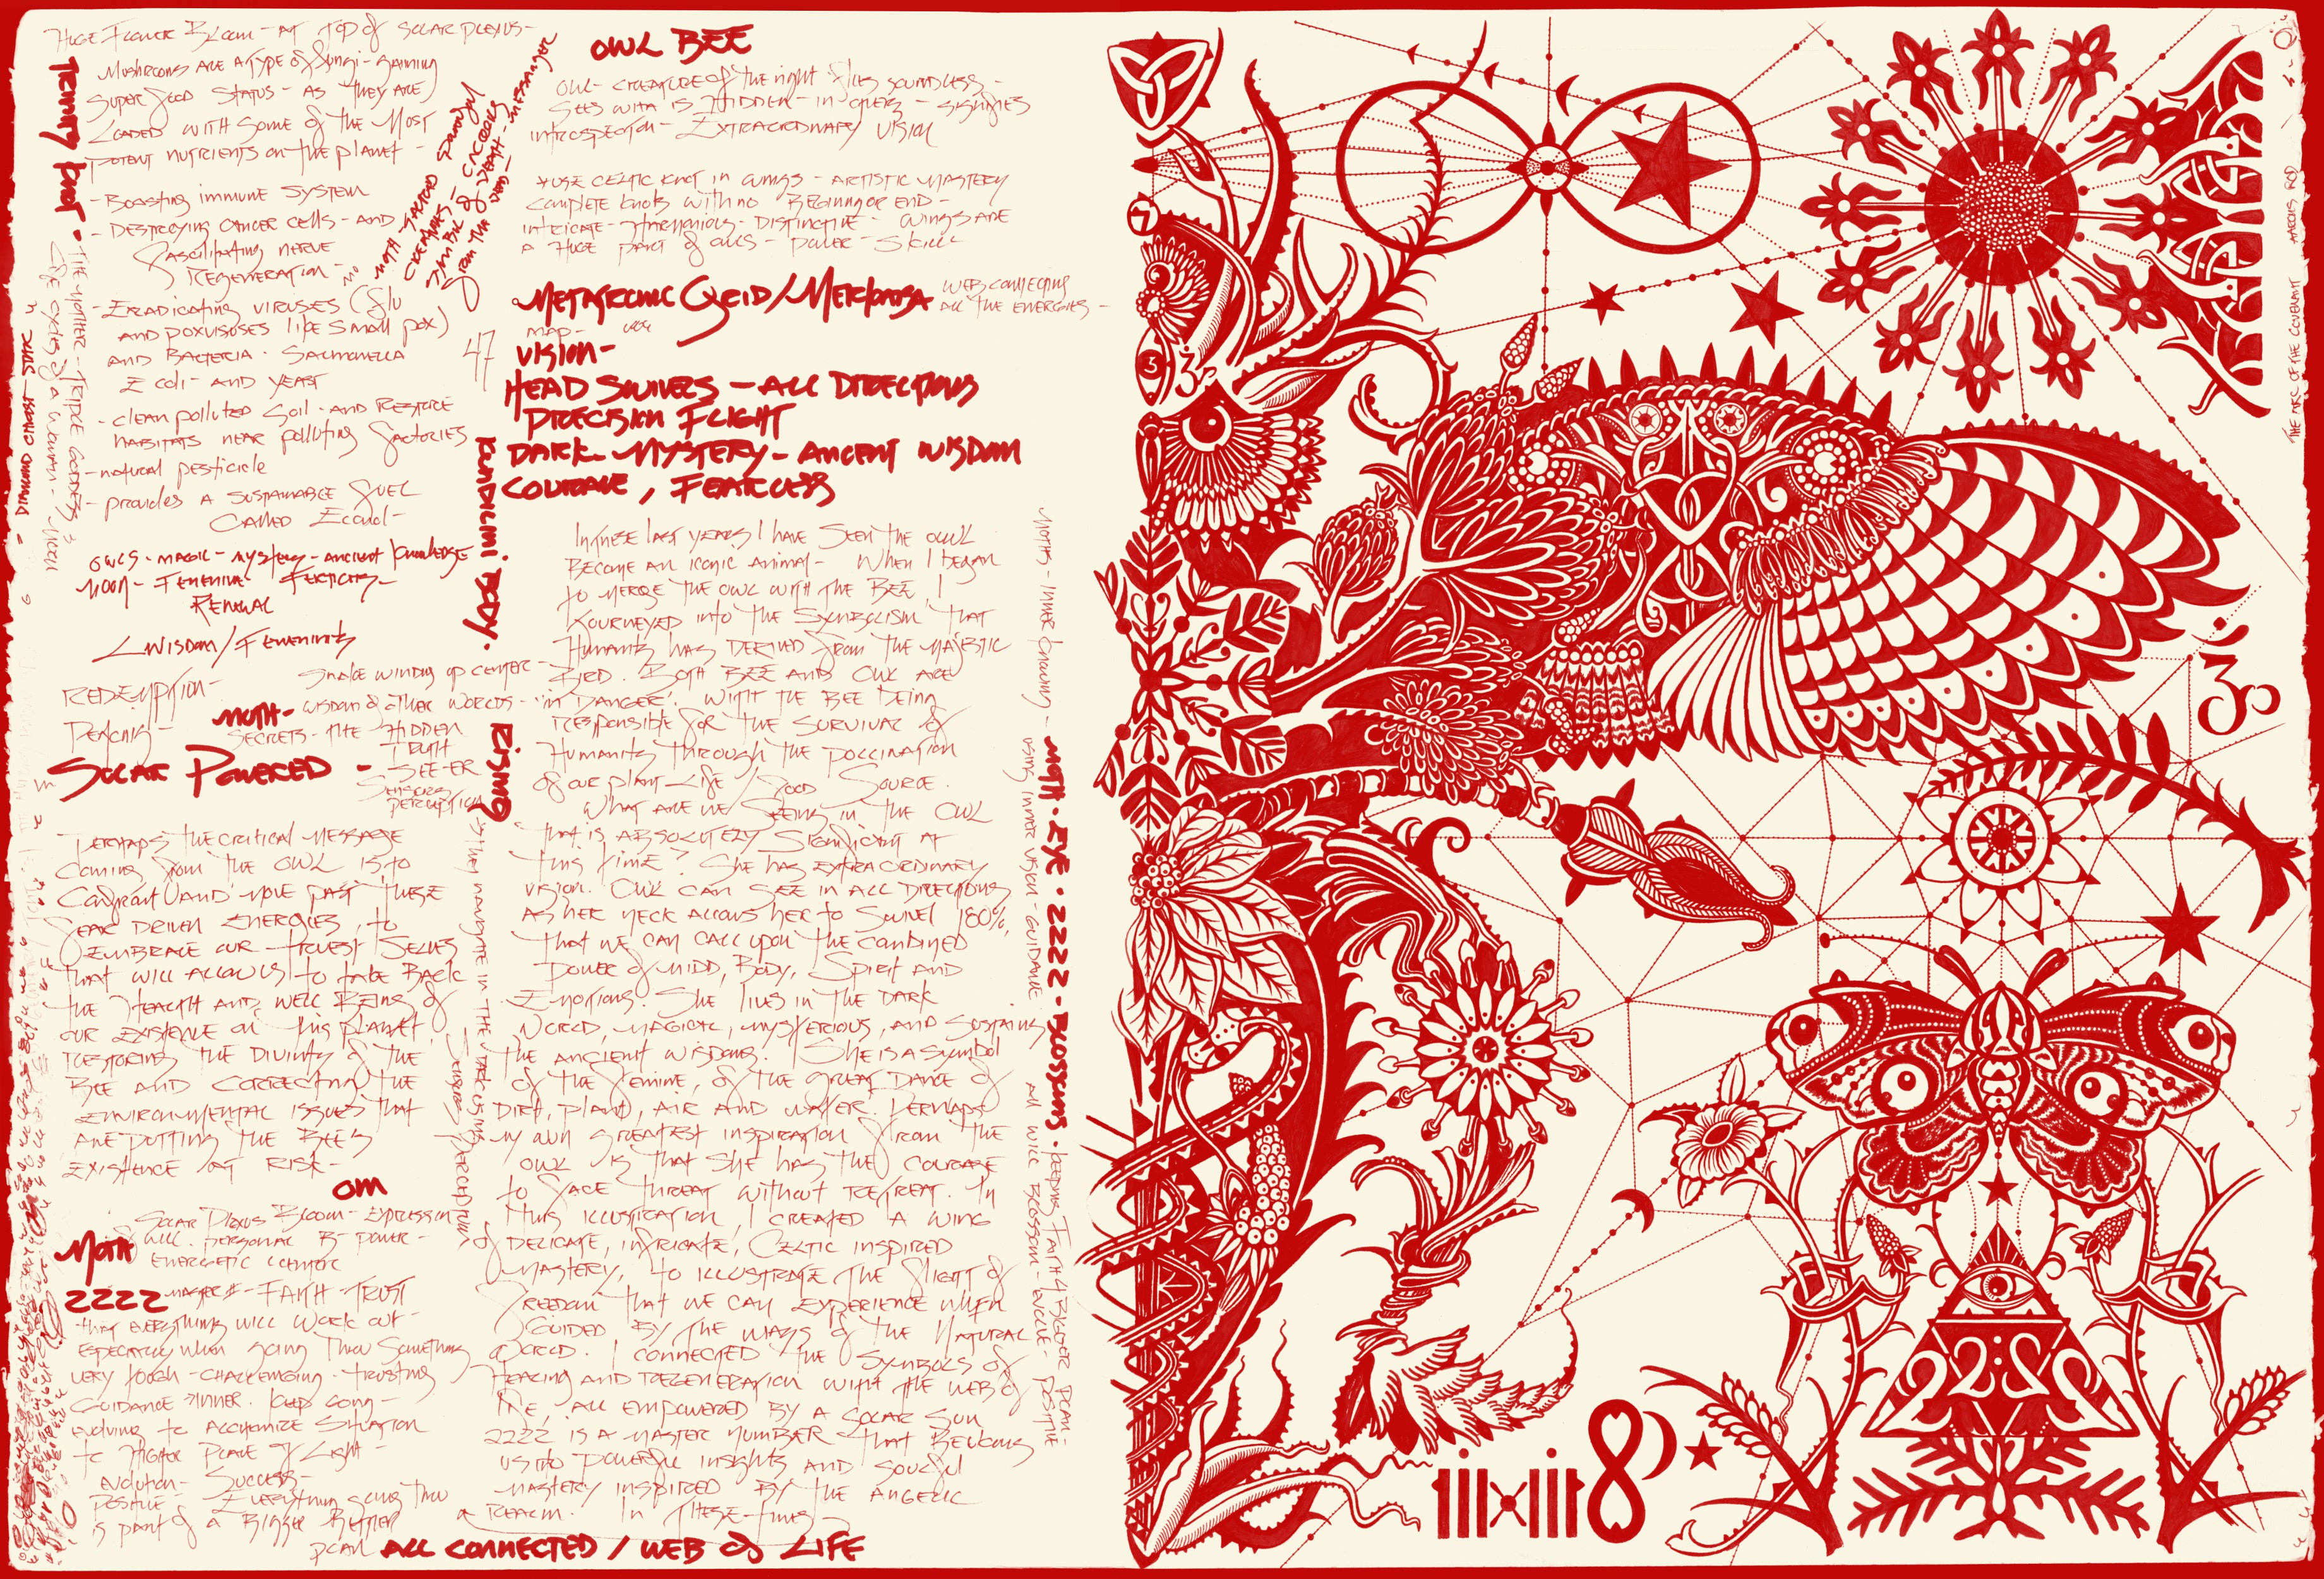 HUGE FLOWER BLOOM - AT TOP of SOLAR PLEXUS -
MUSHROOMS ARE A TYPE of fungi - gaining
SUPER food STATUS - AS THEY ARE
LOADED WITH SOME of THE MOST
POTENT NUTRIENTS ON THE planet -
- BOASTING IMMUNE SYSTEM
- DESTROYING CANCER CELLS - AND
fascilitating NERVE
REGENERATION -
- ERADICATING VIRUSES (flu
AND POXVISUSES like small pox)
AND BACTERIA - SALMONELLA
E coli - AND YEAST
- clean polluted soil - AND RESTORE
HABITATS NEAR polluting factories
- natural pesticide
- provides A SUSTAINABLE fUEL
CALLED Econol -
OWLS - MAGIC - MYSTERY - ANCIENT knowledge
MOON - FEMENINE - FERTILITY -
RENEWAL
WISDOM / FEMENINITY
TRINITY knot -
THE MOTHER - TRIPLE GODDESS 3
life CYCLES of A WOMAN - MOON
DIAMOND CHAOST - STATIC
MOTH - SACRED DANCING
CREATURES -
SYMBOL of DEATH - MESSANGER
from THE DEAD -
47
KUNDILINI BODY.
RISING
Snake winding up center -
REDEMPTION -
MOTH - WISDOM of OTHER WORLDS -
SECRETS - THE HIDDEN
TRUTH
SOLAR POWERED - SEE-ER
SENSORY
PERCEPTION
PERHAPS THE CRITICAL MESSAGE
Coming from THE OWL IS to
Confront AND MOVE PAST THESE
FEAR DRIVEN ENERGIES, to
EMBRACE OUR TRUEST SELVES
THAT WILL ALLOW US to take BACK
the HEALTH AND WELL BEING of
OUR EXISTENCE on this planet,
RESTORING THE DIVINITY of THE
BEE AND CORRECTING THE
ENVIRONMENTAL ISSUES THAT
ARE PUTTING THE BEE'S
EXISTENCE AT RISK -
THEY NAVIGATE IN THE DARK USING
SENSORY PERCEPTION
OM
SOLAR PLEXUS BLOOM - EXPRESSION
of WILL - PERSONAL POWER -
ENERGETIC CENTER
MOTH
2222 MASTER # - FAITH - TRUST
that EVERYTHING WILL WORK OUT -
ESPECIALLY WHEN going THRU Something
VERY tough - CHALLENGING - trusting
GUIDANCE INNER. keep going -
evolving to ALCHEMIZE SITUATION
to HIGHER PLANE of LIGHT -
Evolution - Success -
POSITIVE - EVERYTHING going THRU
is part of A BIGGER BETTER
plan
ALL CONNECTED / WEB of LIFE
OWL BEE
OWL - CREATURE of THE night flies soundless -
SEES WHTA IS HIDDEN - IN OTHERS - SIGNIFIES
INTROSPECTION - EXTRAORDINARY VISION
HUGE CELTIC KNOT IN WINGS - ARTISTIC MASTERY
COMPLETE knots WITH NO BEGINNING OR END -
INTRICATE - HARMONIOUS - DISTINCTIVE - WINGS ARE
A HUGE PART of OWLS - POWER - SKILL
METATRONIC GRID / MERKABA WEB CONNECTING
ALL THE ENERGIES -
MAP -
VISION -
HEAD SWIVELS - ALL DIRECTIONS
PRECISION FLIGHT
DARK - MYSTERY - ANCIENT WISDOM
COURAGE, FEARLESS
IN THESE LAST YEARS I HAVE SEEN THE OWL
BECOME AN ICONIC ANIMAL - WHEN I BEGAN
to MERGE THE OWL WITH THE BEE, I
JOURNEYED INTO THE SYMBOLISM THAT
HUMANITY HAS DERIVED from THE MAJESTIC
BIRD. BOTH BEE AND OWL ARE
'IN DANGER'. WITH THE BEE BEING
RESPONSIBLE for THE SURVIVAL of
HUMANITY THROUGH THE POLLINATION
of our plant - LIFE / FOOD SOURCE.
WHAT ARE WE SEEING IN THE OWL
THAT IS ABSOLUTELY SIGNIFICANT AT
THIS TIME? SHE HAS EXTRAORDINARY
VISION. OWL CAN SEE IN ALL DIRECTIONS
AS HER NECK ALLOWS HER TO SWIVEL 180%,
THAT WE CAN CALL UPON THE COMBINED
POWER of MIDD, BODY, SPIRIT AND
EMOTIONS. SHE LIVES IN THE DARK
WORLD, MAGICAL, MYSTERIOUS, AND SUSTAINS
THE ANCIENT WISDOMS. SHE IS A SYMBOL
of THE FEMINE, of THE GREAT DANCE of
DIRT, PLANT, AIR AND WATER. PERHAPS
MY OWN GREATEST INSPIRATION from THE
OWL IS THAT SHE HAS THE COURAGE
to FACE THREAT WITHOUT RETREAT. IN
THIS ILLUSTRATION I CREATED A WING
of DELICATE, INTRICATE, CELTIC INSPIRED
MASTERY, to ILLUSTRATE THE FLIGHT of
FREEDOM THAT WE CAN EXPERIENCE WHEN
GUIDED BY THE WAYS of THE NATURAL
WORLD. I CONNECTED THE SYMBOLS of
HEALING AND REGENERATION WITH THE WEB of
LIFE, ALL EMPOWERED BY A SOLAR SUN
2222 IS A MASTER NUMBER THAT BECKONS
US INTO POWERFUL INSIGHTS AND SOULFUL
MASTERY INSPIRED BY THE ANGELIC
REALM. IN THESE TIMES -
MOTHS - INNER knowing - MOTH - EYE - 2222 - BLOSSOMS - keeping FAITH 4 BIGGER PLAN -
USING INNER VISION - GUIDANCE ALL WILL BLOSSOM - EVOLVE - POSITIVE
7
3
AARONS ROD
THE ARC OF THE COVENANT
2222
8